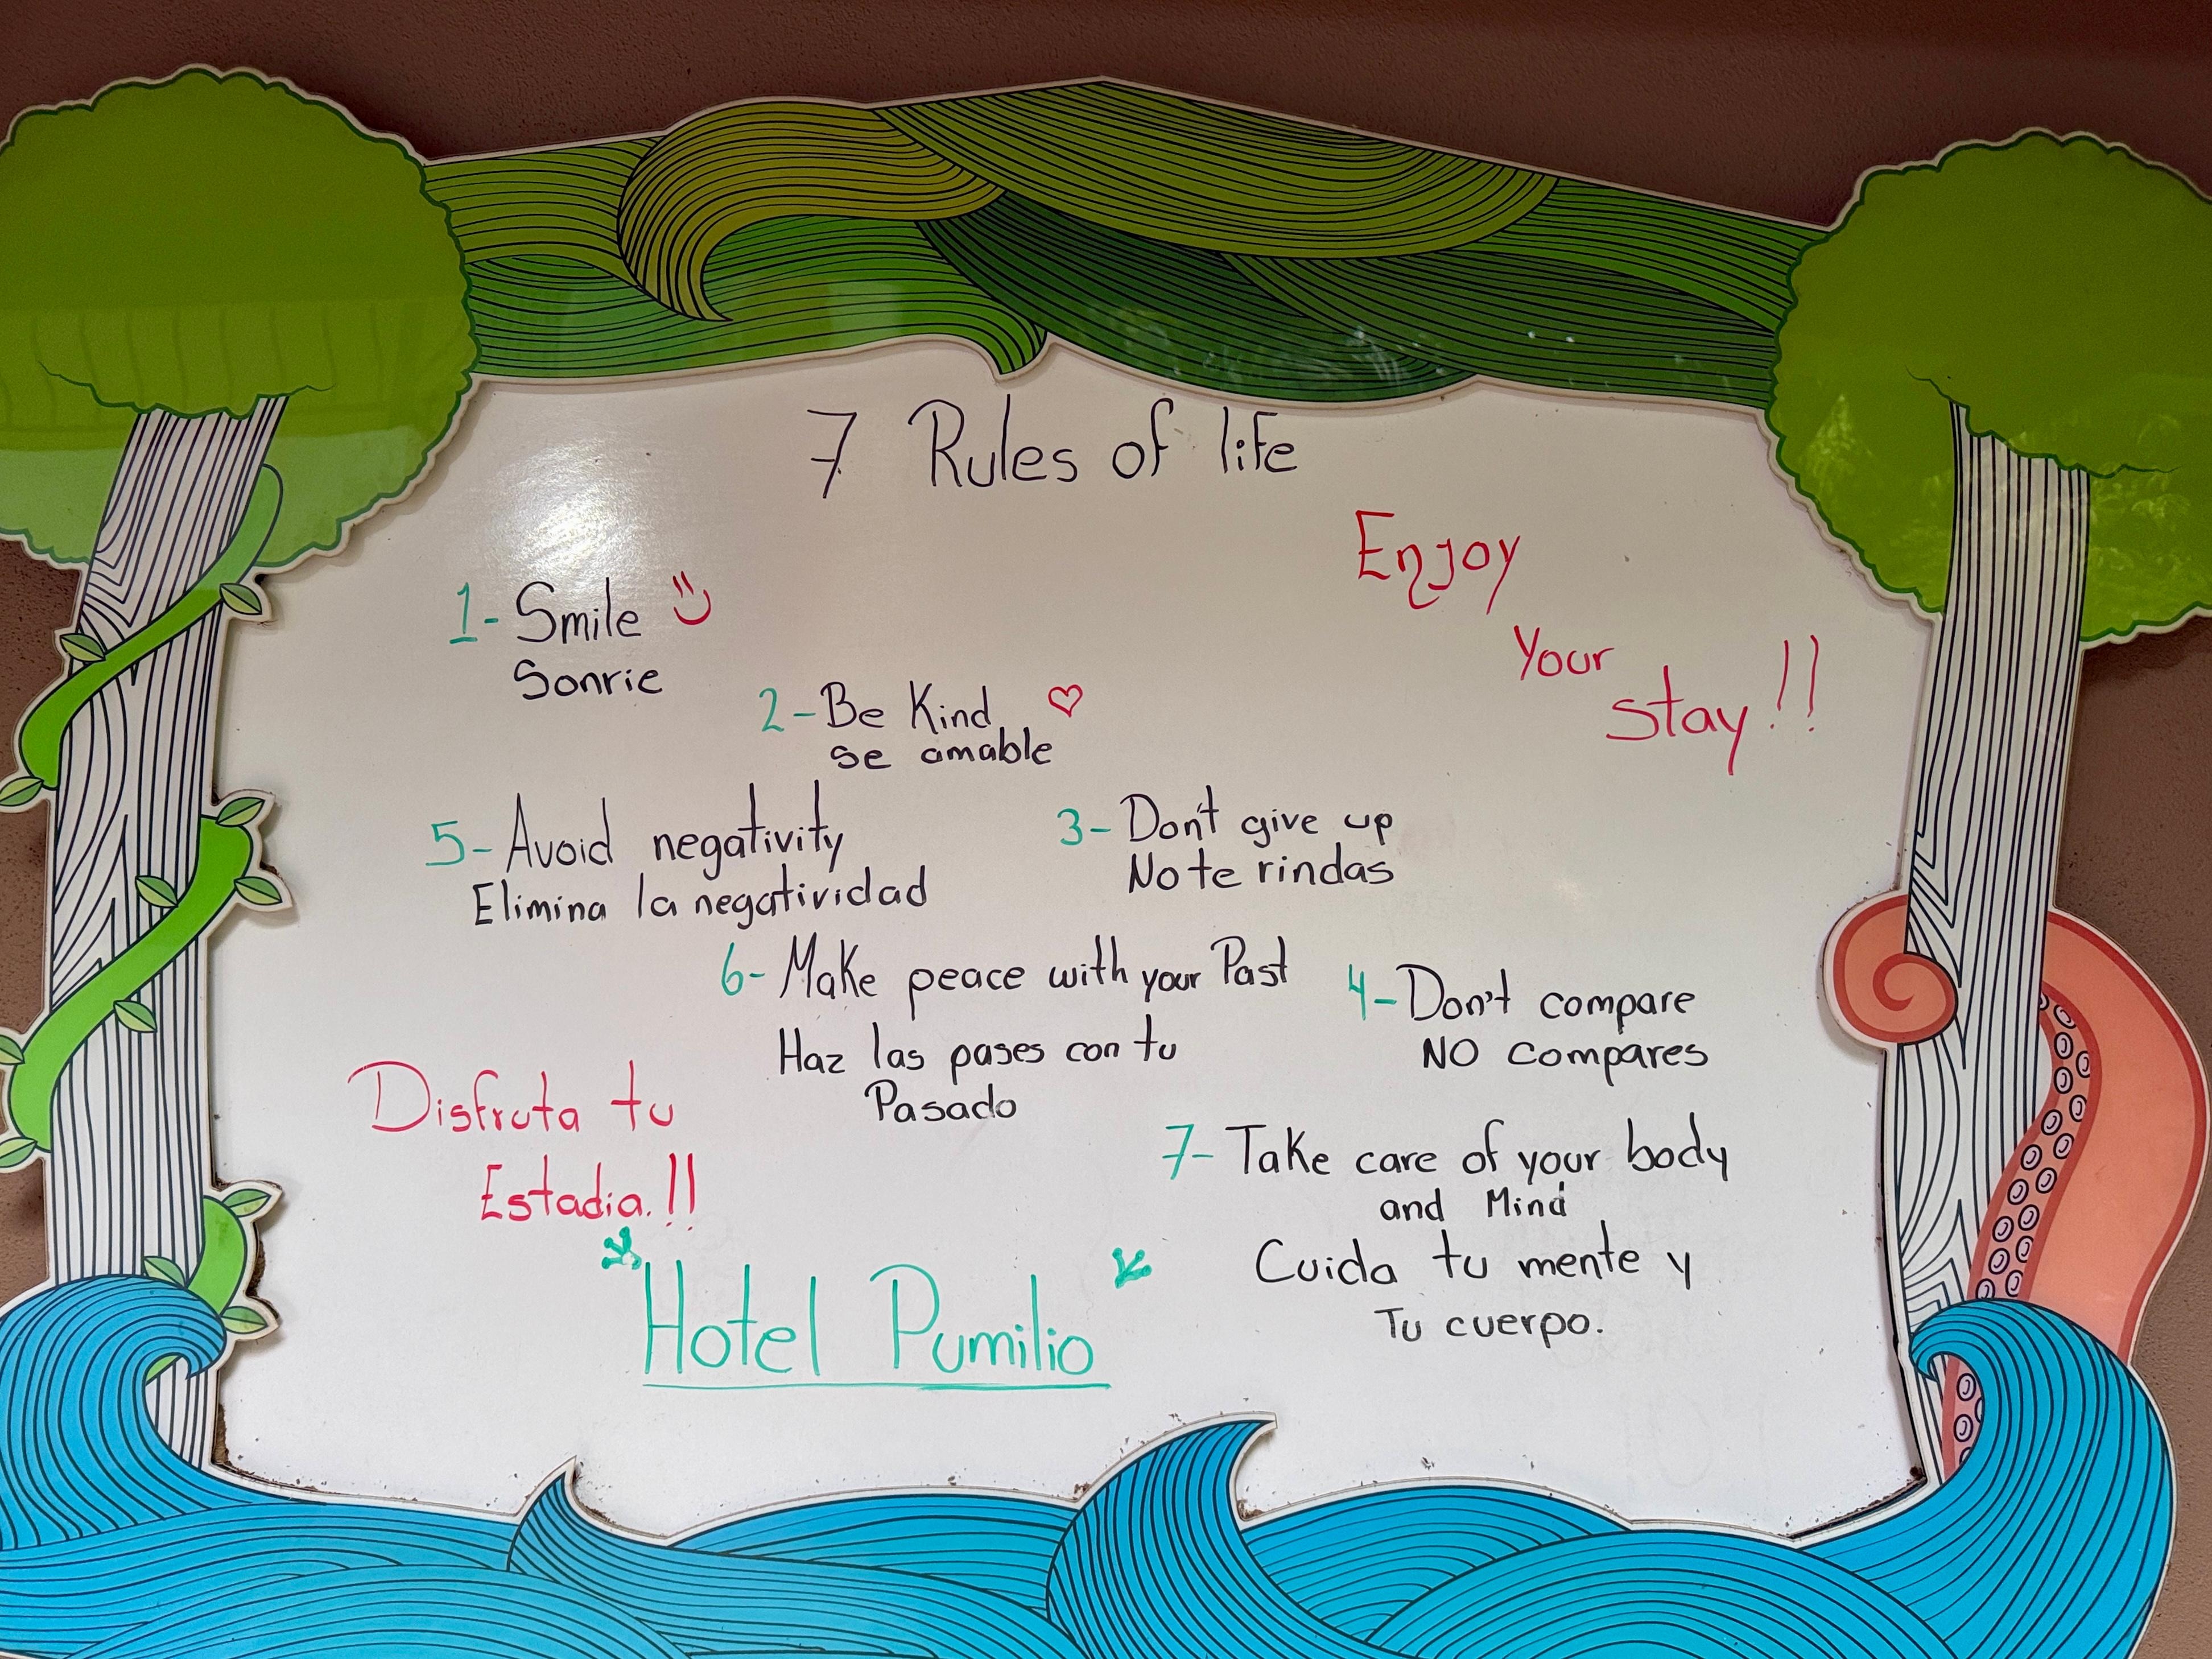 7 Rules of life
Enjoy
Your
stay!!
1- Smile
Sonrie
2- Be Kind
se amable
3- Don't give up
No te rindas
4- Don't compare
NO compares
5- Avoid negativity
Elimina la negatividad
6- Make peace with your Past
Haz las pases con tu
Pasado
7- Take care of your body
and Mind
Cuida tu mente y
Tu cuerpo.
Disfruta tu
Estadia.!!
Hotel Pumilio